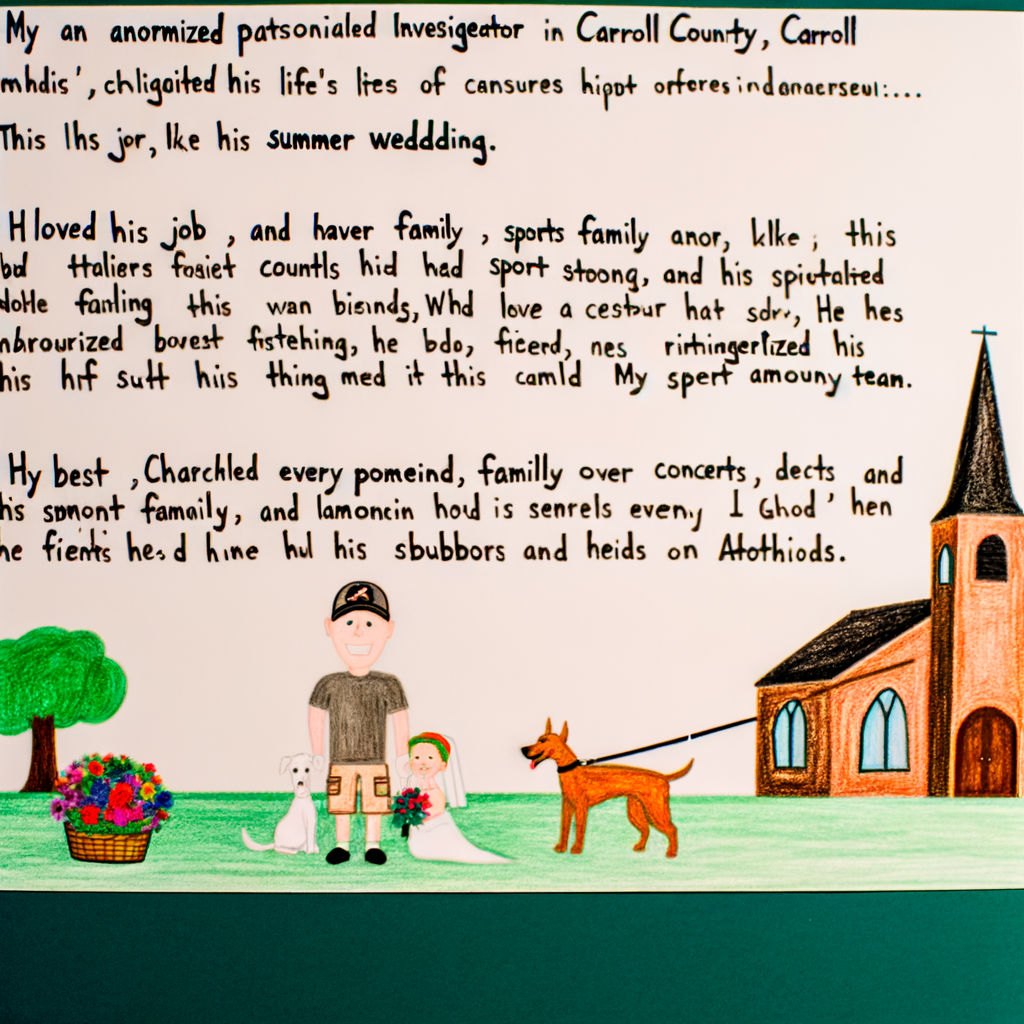 My an anormized patsonialed Invesigeator in Carroll Counrty, Carroll
mhdis', chligoited his life's lites of cansures hipot orferes indonacrseul:...
This lhs jor, lke his summer weddding.
H loved his job , and haver family , sports family anor, klke ; this
bd ttaliers fosiet countls hid had sport stoong, and his spiutalted
dotle fanling this wan bisinds, Whd love a cestbur hat sdr., He hes
nbrourized bovest fistehing, he bdo, ficerd, nes rirhingerlized his
his hff sutt hiis thing med it this camld My spert amouny tean.
Hy best , Charchled every pomeind, familly over concerts, dects and
his smnont famaily, and lamoncin hod is senrels eveny I Ghod ' hen
he fientis hes d hine hul his sbubbors and heids on Atothiods.